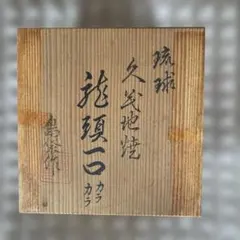 琉球
久茂地焼
龍頭一口
カラカラ